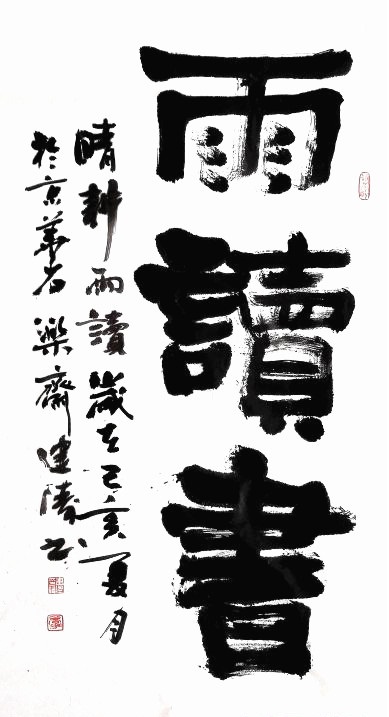 雨讀書
晴耕雨讀歲在己亥夏月
於京華石樂齋建陵书